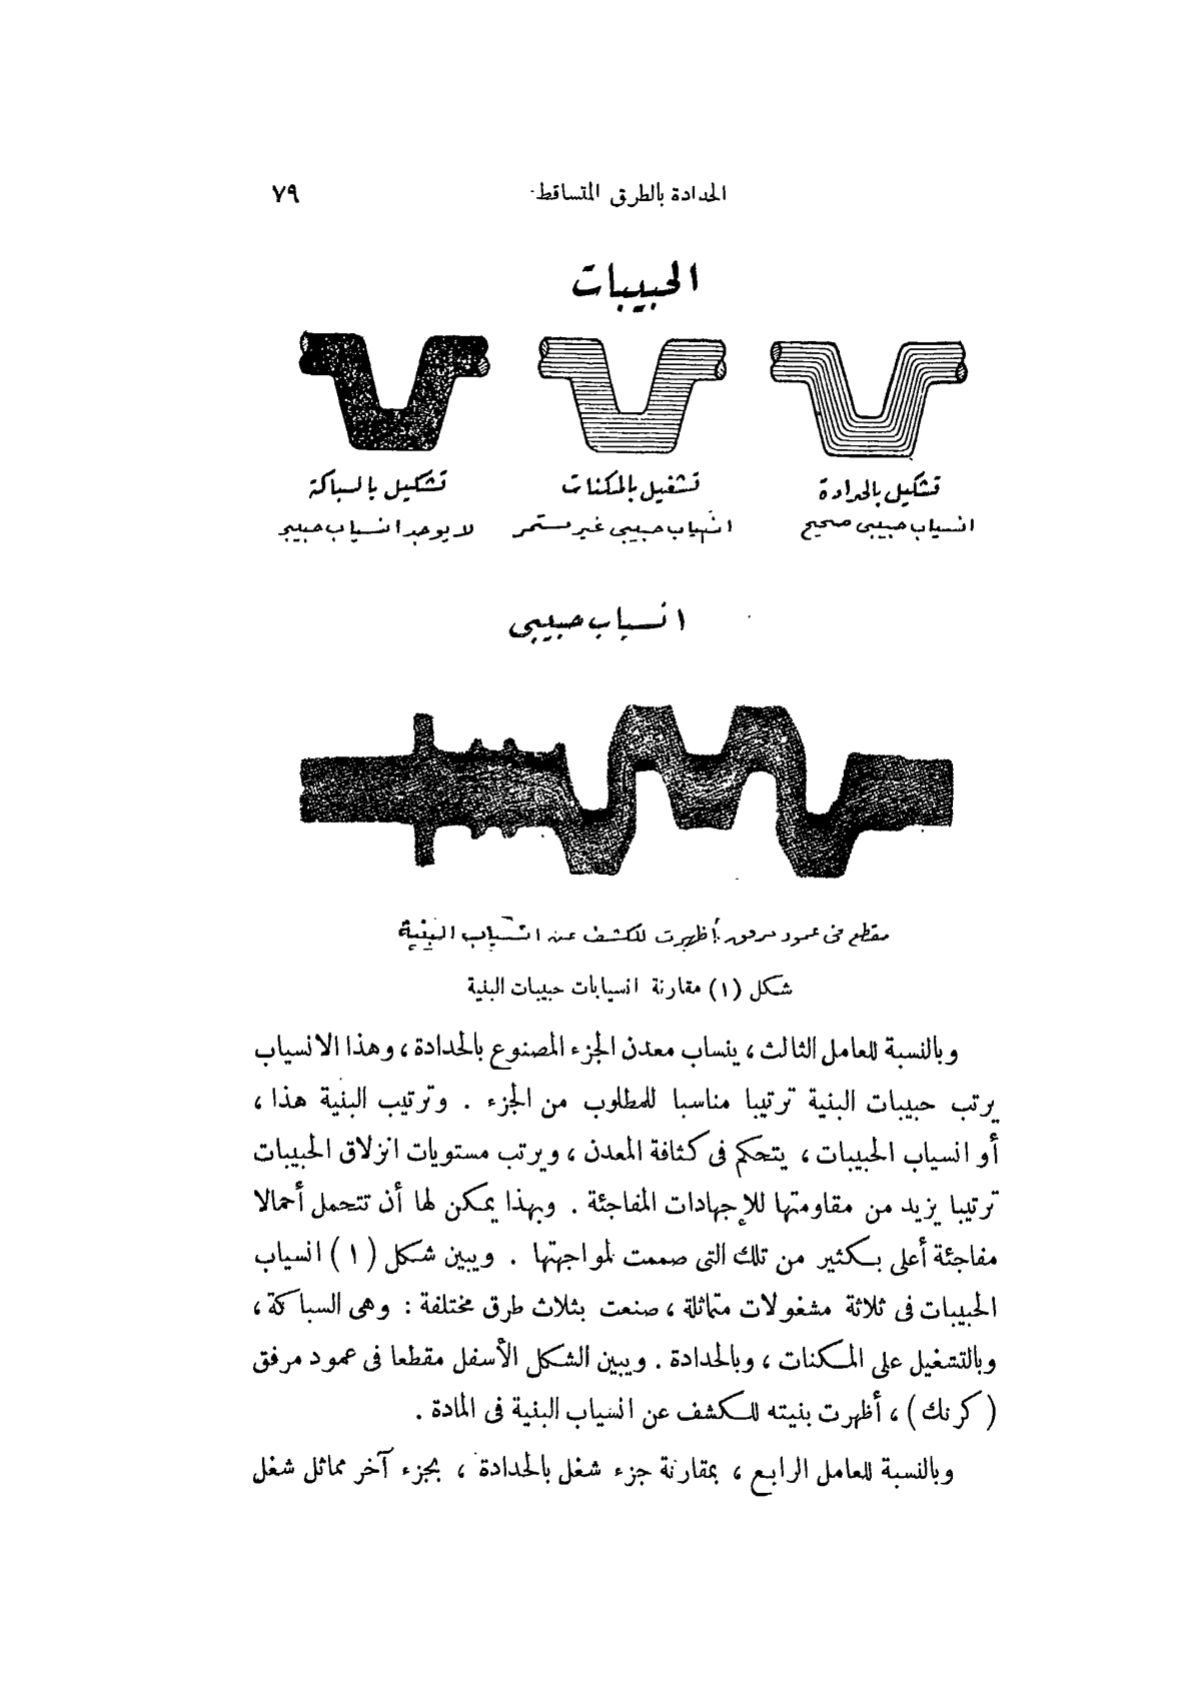 الحدادة بالطرق المتساقط ٧٩
الحبيبات
تشكيل بالحدادة
انسياب حبيبى صحيح
تشغيل بالمكنات
انسياب حبيبى غير مستمر
تشكيل بالسباكة
لا يوجد انسياب حبيبى
انسياب حبيبى
مقطع فى عمود مرفق أظهرت للكشف عن انسياب البنية
شكل (١) مقارنة انسيابات حبيبات البنية
وبالنسبة للعامل الثالث ، ينساب معدن الجزء المصنوع بالحدادة ، وهذا الانسياب
يرتب حبيبات البنية ترتيبا مناسبا للمطلوب من الجزء . وترتيب البنية هذا ،
أو انسياب الحبيبات ، يتحكم فى كثافة المعدن ، ويرتب مستويات انزلاق الحبيبات
ترتيبا يزيد من مقاومتها للإجهادات المفاجئة . وبهذا يمكن لها أن تتحمل أحمالا
مفاجئة أعلى بكثير من تلك التى صممت لمواجهتها . ويبين شكل (١) انسياب
الحبيبات فى ثلاثة مشغولات متماثلة ، صنعت بثلاث طرق مختلفة : وهى السباكة ،
وبالتشغيل على المكنات ، وبالحدادة . ويبين الشكل الأسفل مقطعا فى عمود مرفق
(كرنك) ، أظهرت بنيته للكشف عن انسياب البنية فى المادة .
وبالنسبة للعامل الرابع ، بمقارنة جزء شغل بالحدادة ، بجزء آخر مماثل شغل